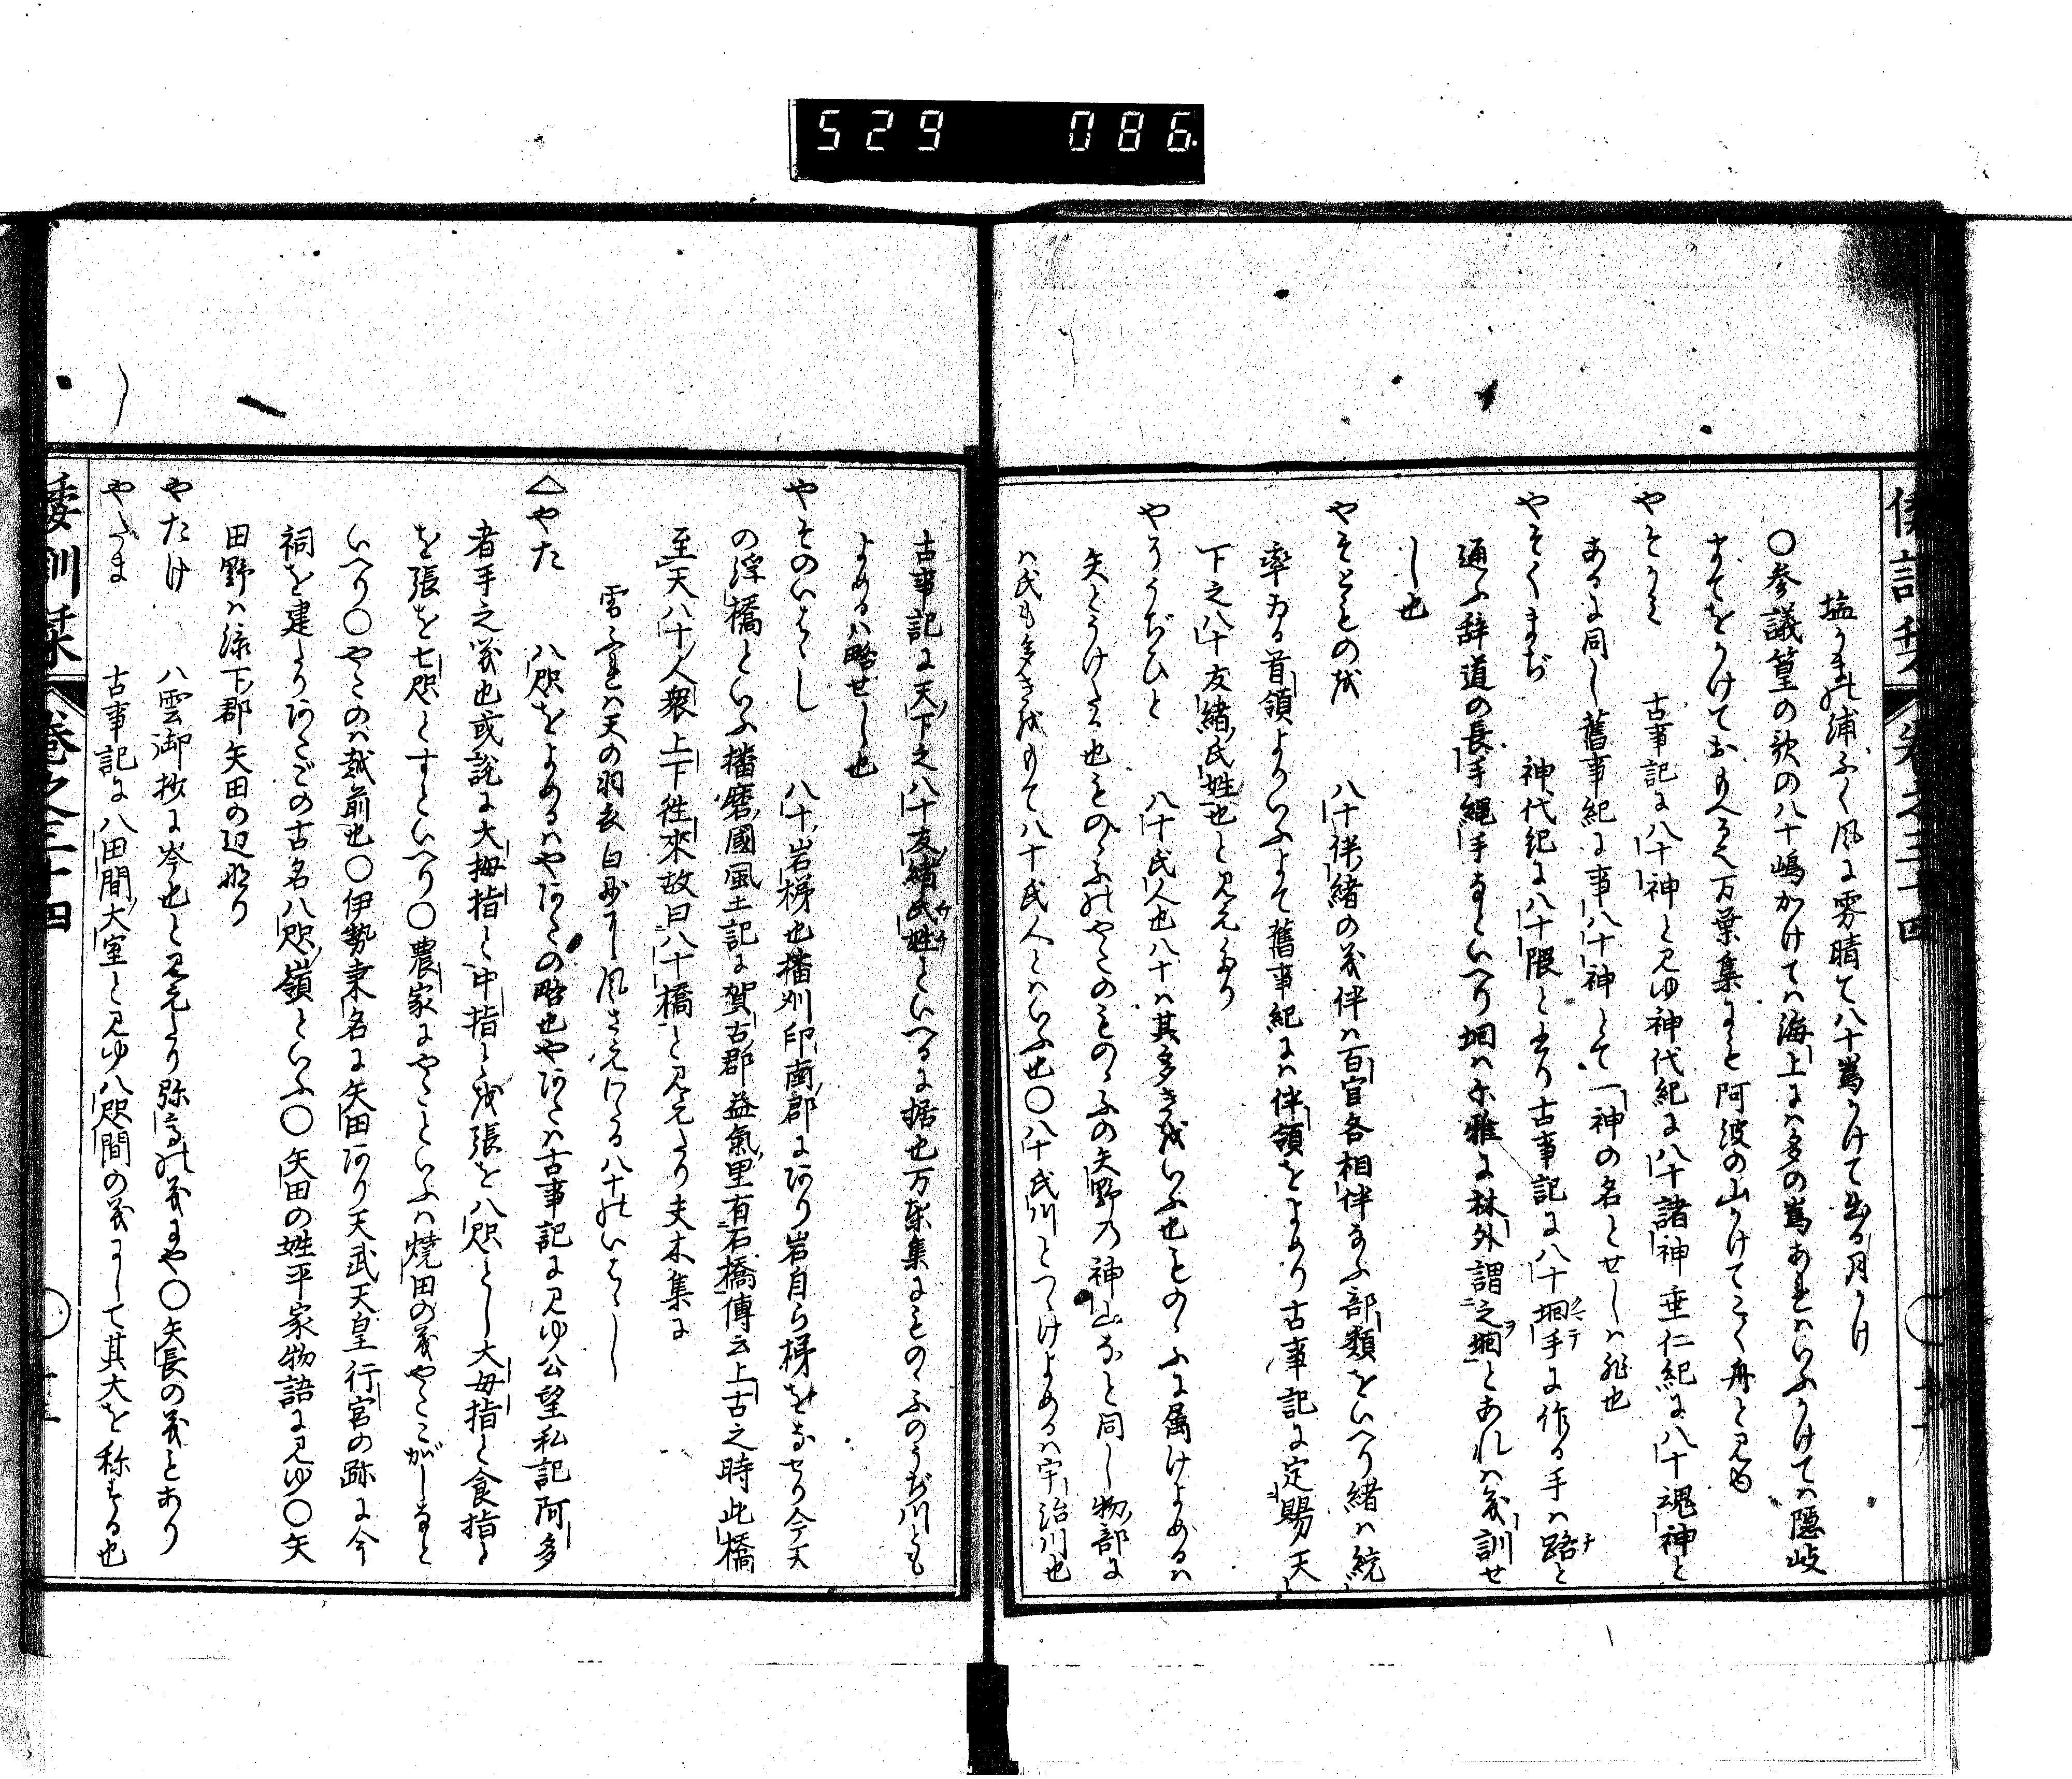 529 086
塩うまの浦ふく風に雰晴て八十嶌かけて出る月かけ
〇参議篁の歌の八十嶋かけてハ海上にハ多の嶌あれハいふかけてハ隠岐
まてをかけておもへる也万葉集にも阿波の山かけてこく舟と見ゆ
やそかミ 古事記に八十神と見ゆ神代紀に八十諸神垂仁紀に八十魂神と
あるに同し舊事紀に事八十神とて一神の名とせしハ非也
やそくまぢ 神代紀に八十隈と出り古事記に八十坰手に作る手ハ路と
通ふ辞道の長手縄手なといへり坰ハ尓雅に林外謂之坰とあれハ義訓せ
し也
やそとものを 八十伴緒の義伴ハ百官各相伴なふ部類をいへり緒ハ統
率ゐる首領よりいふよて舊事紀にハ伴領をよめり古事記に定賜天
下之八十友緒氏姓也と見えたり
やそうぢひと 八十氏人也八十ハ其多きをいふ也ものゝふに属けよめるハ
矢とうけたる也ものゝふのやたのものゝふの矢野乃神山なと同し物部に
ハ氏も多きをもて八十氏人とハいふ也〇八十氏川とつゝけよめるハ宇治川也
古事記に天下之八十友緒氏姓といへるに据也万葉集にものゝふのうぢ川とも
よめるハ略せし也
やそのいはゝし 八十岩梯也播刕印南郡にあり岩自ら梯をなせり今天
の浮橋といふ播磨國風土記に賀古郡益氣里有石橋傳云上古之時此橋
至天八十人衆上下往來故曰八十橋と見えたり夫木集に
雪ふれハ天の羽衣白妙にし風さえわたる八十のいはゝし
△やた 八咫をよめるハやあたの略也やあたハ古事記に見ゆ公望私記阿多
者手之義也或説に大拇指と中指とを張を八咫とし大母指と食指と
を張を七咫とすといへり〇農家にやたといふハ燒田の義やたこがしなと
いへり〇やたのハ越前也〇伊勢桒名に矢田あり天武天皇行宮の跡に今
祠を建たりあたごの古名八咫嶺といふ〇矢田の姓平家物語に見ゆ〇矢
田野ハ添下郡矢田の辺なり
やたけ 八雲御抄に岑也と見えたり弥高の義にや〇矢長の義とあり
やたま 古事記に八田間大室と見ゆ八咫間の義にして其大を称する也
倭訓栞 卷之三十四